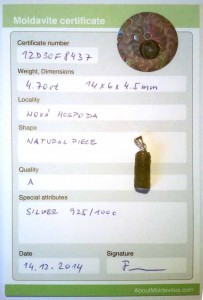 Moldavite certificate
Certificate number
12D30F8437
Weight, Dimensions
4.70ct 14x6x4.5mm
Locality
NOVÁ HOSPODA
Shape
NATURAL PIECE
Quality
A
Special attributes
SILVER 925/1000
Date
Signature
14.12.2014
AboutMoldavites.com